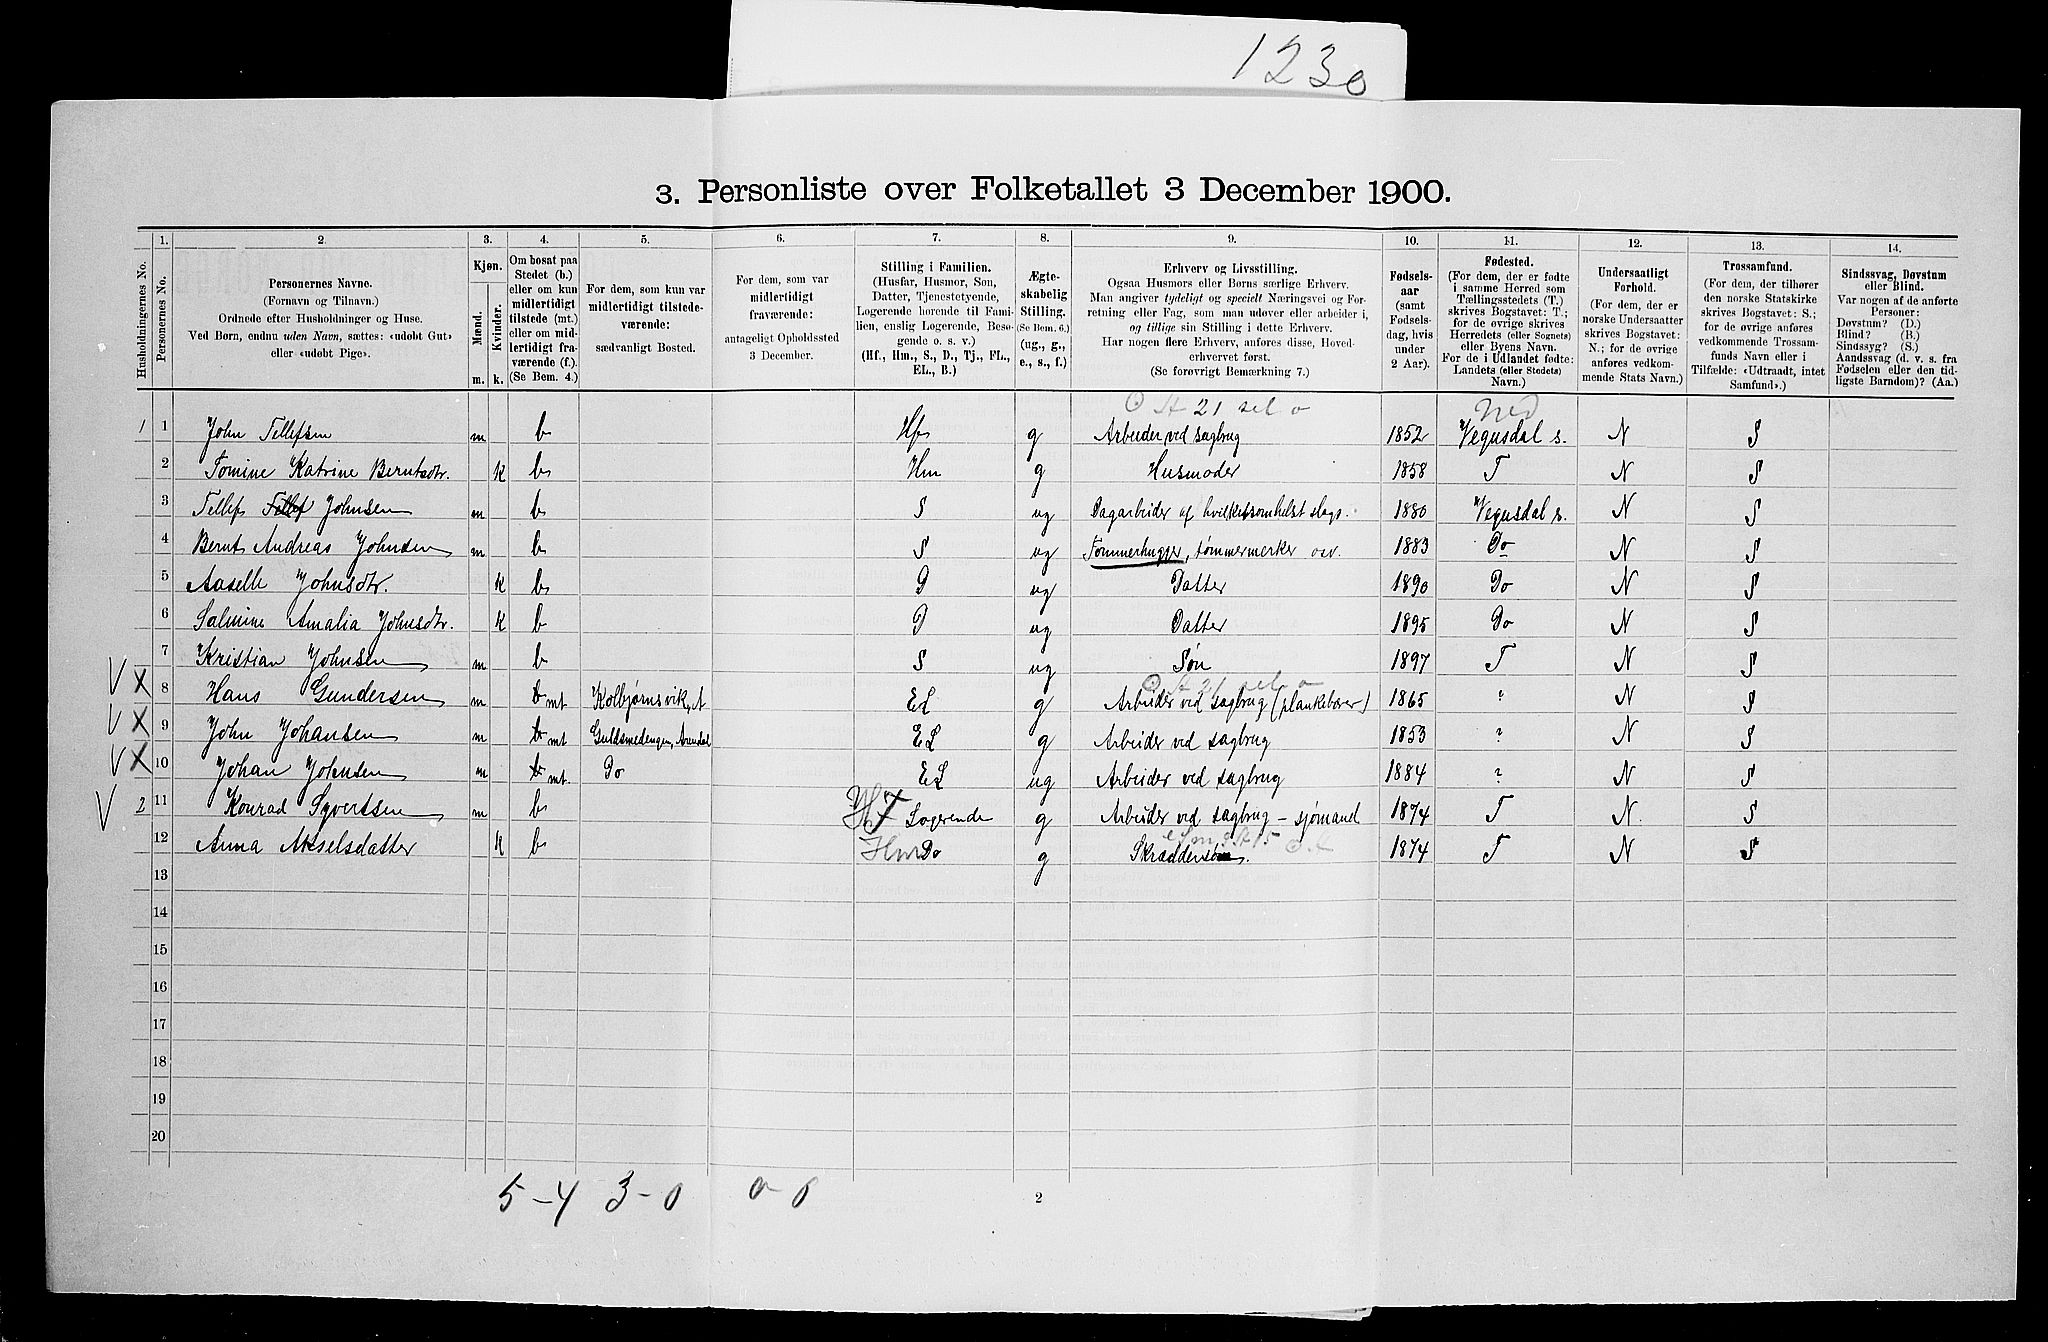 1230
3. Personliste over Folketallet 3 December 1900.
Husholdningernes No.
1. Personernes No.
2. Personernes Navne.
(Fornavn og Tilnavn.)
Ordnede efter Husholdninger og Huse.
Ved Børn, endnu uden Navn, sættes: «udøbt Gut»
eller «udøbt Pige».
3. Kjøn.
Mænd. m.
Kvinder. k.
4. Om bosat paa
Stedet (b.)
eller om kun
midlertidigt
tilstede (mt.)
eller om mid-
lertidigt fra-
værende (f.).
(Se Bem. 4.)
5. For dem, som kun var
midlertidigt tilstede-
værende:
sædvanligt Bosted.
6. For dem, som var
midlertidigt
fraværende:
antageligt Opholdssted
3 December.
7. Stilling i Familien.
(Husfar, Husmor, Søn,
Datter, Tjenestetyende,
Logerende hørende til Fami-
lien, enslig Logerende, Besø-
gende o. s. v.)
(Hf., Hm., S., D., Tj., FL.,
EL., B.)
8. Ægte-
skabelig
Stilling.
(Se Bem. 6.)
(ug., g.,
e., s., f.)
9. Erhverv og Livsstilling.
Ogsaa Husmors eller Børns særlige Erhverv.
Man angiver tydeligt og specielt Næringsvei og For-
retning eller Fag, som man udøver eller arbeider i,
og tillige sin Stilling i dette Erhverv.
Har nogen flere Erhverv, anføres disse, Hoved-
erhvervet først.
(Se forøvrigt Bemærkning 7.)
10. Fødsels-
aar
(samt
Fødsels-
dag, hvis
under
2 Aar).
11. Fødested.
(For dem, der er fødte
i samme Herred som
Tællingsstedets (T.)
skrives Bogstavet: T.;
for de øvrige skrives
Herredets (eller Sognets)
eller Byens Navn.
For de i Udlandet fødte:
Landets (eller Stedets)
Navn.)
12. Undersaatligt
Forhold.
(For dem, der er
norske Undersaatter
skrives Bogstavet:
N.; for de øvrige
anføres vedkom-
mende Stats Navn.)
13. Trossamfund.
(For dem, der tilhører
den norske Statskirke
skrives Bogstavet: S.;
for de øvrige anføres
vedkommende Trossam-
funds Navn eller i
Tilfælde: «Udtraadt, intet
Samfund».)
14. Sindssvag, Døvstum
eller Blind.
Var nogen af de anførte
Personer:
Døvstum? (D.)
Blind? (B.)
Sindssyg? (S.)
Aandssvag (d. v. s. fra
Fødselen eller den tid-
ligste Barndom)? (Aa.)
21 sel o Ned
1 1 John Tellefsen m b Hf g Arbeider ved sagbrug 1852 Vegusdal s. N S
2 Tomine Katrine Berntsdtr. k b Hm g Husmoder 1858 T N S
3 Tellef Tellef Johnsen m b S ug Dagarbeider af hvilketsomhelst slags. 1880 Vegusdal s. N S
4 Bernt Andreas Johnsen m b S ug Tømmerhugger, tømmermerker osv. 1883 Do N S
5 Aaselle Johnsdtr. k b D ug Datter 1890 Do N S
6 Salmine Amalia Johnsdtr. k b D ug Datter 1895 Do N S
7 Kristian Johnsen m b S ug Søn 1897 T N S
21 sel o
V X 8 Hans Gundersen m b mt Kolbjørnsvik, A EL g Arbeider ved sagbrug (plankebærer) 1865 ? N S
V X 9 John Johansen m b mt Guldsmedengen, Arendal EL g Arbeider ved sagbrug 1853 ? N S
V X 10 Johan Johnsen m b mt Do EL ug Arbeider ved sagbrug 1884 ? N S
V 2 11 Konrad Syvertsen m b Hf Logerende g Arbeider ved sagbrug - sjømand 1874 T N. S
12 Anna Akselsdatter k b Hm Do g Skræddersøm. 1874 T N S
13
14
15
16
17
18
19
20
5-4 3-0 0-0
2